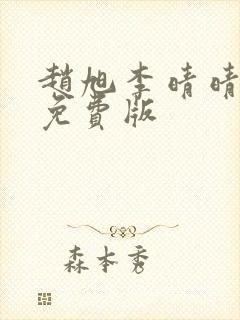 趙旭李晴晴
免費版
森本秀